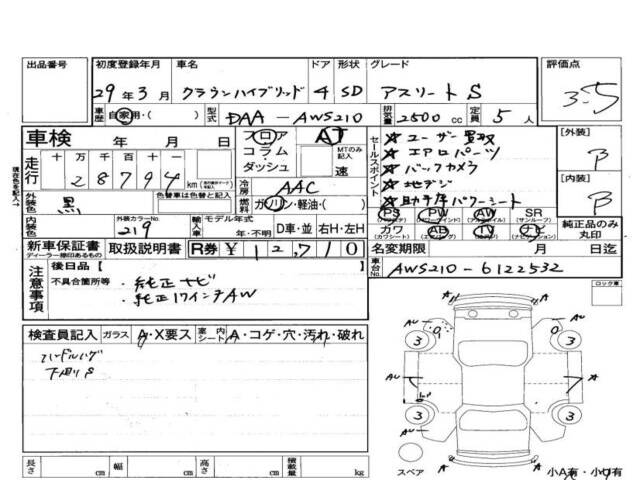 出品番号
初度登録年月 車名 ドア 形状 グレード 評価点
29年3月 クラウンハイブリッド 4 SD アスリートS 3.5
車歴 自家用・( ) 型式 DAA-AWS210 排気量 2500 cc 定員 5 人
車検 年 月 日 フロア AT セールスポイント ★ユーザー買取 【外装】
コラム・ ★エアロパーツ B
走行 十万千百十一 ダッシュ MTのみ記入 速 ★バックカメラ
28794 km 冷房 AAC ★地デジ 【内装】
外装色 黒 色替車は色替と記入 燃料 ガソリン・軽油・( ) ★助手席パワーシート B
内装色 外装カラーNo. 219 輸入車 モデル年式 年・不明 D車・並 右H・左H
PS PW AW SR
(サンルーフ)
カワ AB TV ナビ 純正品のみ丸印
(カワシート) (エアバッグ)
新車保証書 取扱説明書 R券 ¥12,710 名変期限 月 日迄
ディーラー捺印あるもの
車台No. AWS210-6122532
注意事項 後日品【 】
不具合箇所等 ・純正ナビ
・純正17インチAW
ロック車
検査員記入 ガラス A・X要ス 室内シート A・コゲ・穴・汚れ・破れ
ハンドルハゲ
下廻りS
AU A AU
3 3
A A
3 3
AU AU
A
スペア 小A有・小U有
長さ cm 幅 cm 高さ cm 積載量 kg
現状色を記入→